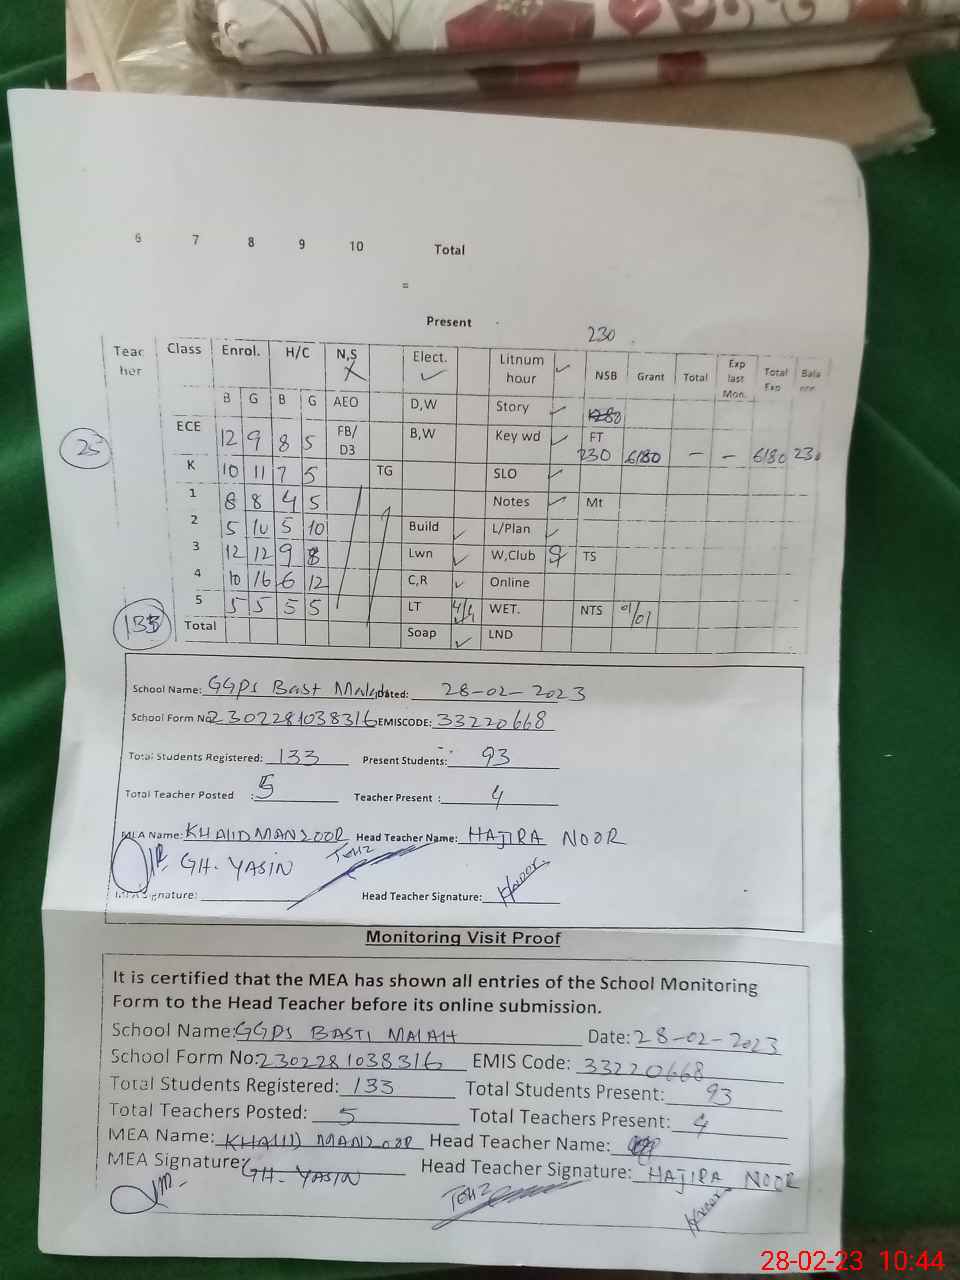 6 7 8 9 10 Total
=
Present
230
Teac her Class Enrol. H/C N,S Elect. ✓ Litnum hour ✓ NSB Grant Total Exp last Mon. Total Exp Bala
B G B G AEO D,W Story ✓
25 ECE 12 9 8 5 FB/ D3 B,W Key wd ✓ FT 230 6180 - - 6180 230
K 10 11 7 5 TG SLO ✓
1 8 8 4 5 Notes ✓ Mt
2 5 10 5 10 Build ✓ L/Plan ✓
3 12 12 9 8 Lwn ✓ W,Club TS
4 10 16 6 12 C,R ✓ Online
5 5 5 5 5 LT 4/4 WET. NTS 01/01
133 Total Soap ✓ LND
School Name: GGPS Basti Malah Dated: 28-02-2023
School Form No 2302281038316 EMISCODE: 33220668
Total Students Registered: 133 Present Students: 93
Total Teacher Posted : 5 Teacher Present : 4
MEA Name: KHALID MANZOOR Head Teacher Name: HAJIRA NOOR
GH. YASIN
MEA Signature: Head Teacher Signature: HNoor
Monitoring Visit Proof
It is certified that the MEA has shown all entries of the School Monitoring
Form to the Head Teacher before its online submission.
School Name: GGPS BASTI MALAH Date: 28-02-2023
School Form No: 2302281038316 EMIS Code: 33220668
Total Students Registered: 133 Total Students Present: 93
Total Teachers Posted: 5 Total Teachers Present: 4
MEA Name: KHALID MANZOOR Head Teacher Name:
MEA Signature: GH. YASIN Head Teacher Signature: HAJIRA NOOR
HNoor
28-02-23 10:44